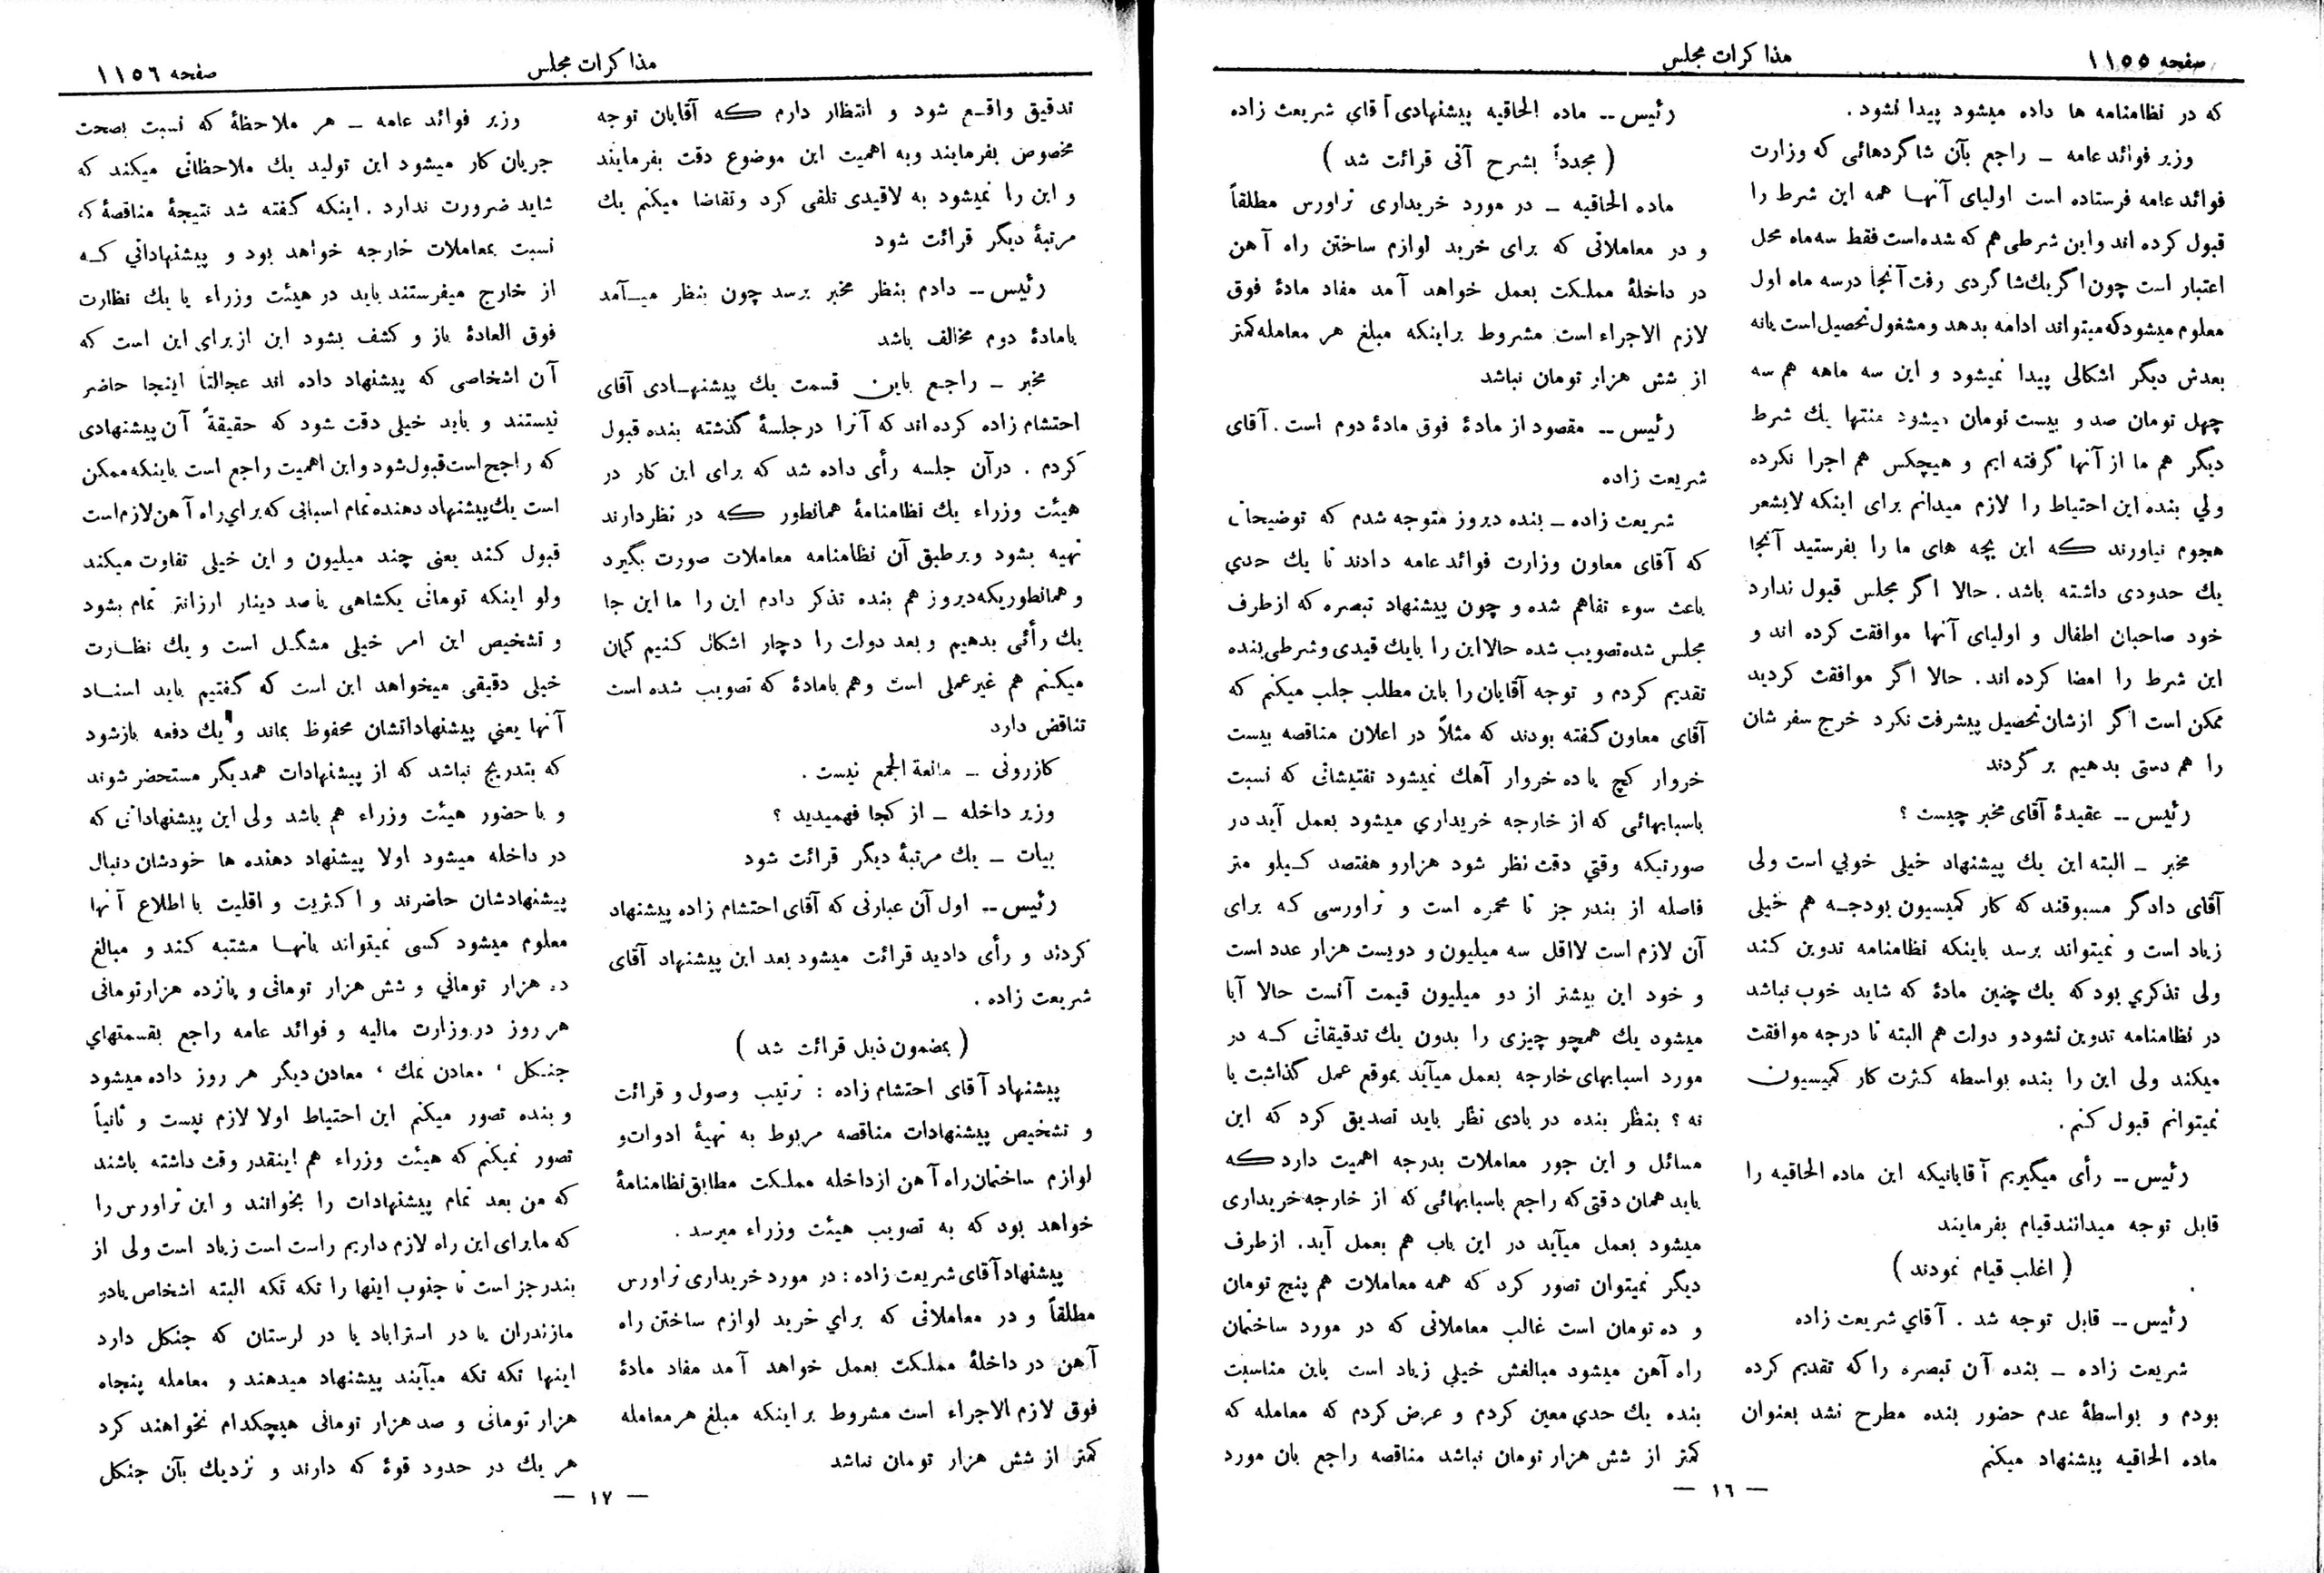 صفحه ۱۱۵۵
مذاکرات مجلس
که در نظامنامه ها داده میشود پیدا نشود .
وزیر فوائد عامه ـ راجع بآن شاگردهائی که وزارت
فوائد عامه فرستاده است اولیای آنها همه این شرط را
قبول کرده اند و این شرطی هم که شده است فقط سه ماه محل
اعتبار است چون اگر یك شاگردی رفت آنجا در سه ماه اول
معلوم میشود که میتواند ادامه بدهد و مشغول تحصیل است یا نه
بعدش دیگر اشکالی پیدا نمیشود و این سه ماهه هم سه
چهل تومان صد و بیست تومان میشود منتها یك شرط
دیگر هم ما از آنها گرفته ایم و هیچکس هم اجرا نکرده
ولي بنده این احتیاط را لازم میدانم برای اینکه لایشعر
هجوم نیاورند که این بچه های ما را بفرستید آنجا
یك حدودی داشته باشد . حالا اگر مجلس قبول ندارد
خود صاحبان اطفال و اولیای آنها موافقت کرده اند و
این شرط را امضا کرده اند . حالا اگر موافقت کردید
ممکن است اگر ازشان تحصیل پیشرفت نکرد خرج سفر شان
را هم دستی بدهیم بر گردند
رئیس ــ عقیدۀ آقای مخبر چیست ؟
مخبر ـ البته این یك پیشنهاد خیلی خوبي است ولی
آقای دادگر مسبوقند که کار کمیسیون بودجه هم خیلی
زیاد است و نمیتواند برسد باینکه نظامنامه تدوین کند
ولی تذکري بود که یك چنین مادۀ که شاید خوب نباشد
در نظامنامه تدوین نشود و دولت هم البته تا درجه موافقت
میکند ولی این را بنده بواسطه کثرت کار کمیسیون
نمیتوانم قبول کنم .
رئیس ــ رأی میگیریم آقایانیکه این ماده الحاقیه را
قابل توجه میدانند قیام بفرمایند
( اغلب قیام نمودند )
رئیس ــ قابل توجه شد . آقاي شریعت زاده
شریعت زاده ـ بنده آن تبصره را که تقدیم کرده
بودم و بواسطۀ عدم حضور بنده مطرح نشد بعنوان
ماده الحاقیه پیشنهاد میکنم
رئیس ــ ماده الحاقیه پیشنهادی آقاي شریعت زاده
( مجدداً بشرح آتی قرائت شد )
ماده الحاقیه ـ در مورد خریداری تراورس مطلقاً
و در معاملاتی که برای خرید لوازم ساختن راه آهن
در داخلۀ مملکت بعمل خواهد آمد مفاد مادۀ فوق
لازم الاجراء است مشروط براینکه مبلغ هر معامله کمتر
از شش هزار تومان نباشد
رئیس ــ مقصود از مادۀ فوق مادۀ دوم است . آقای
شریعت زاده
شریعت زاده ـ بنده دیروز متوجه شدم که توضیحاتی
که آقای معاون وزارت فوائد عامه دادند تا یك حدي
باعث سوء تفاهم شده و چون پیشنهاد تبصره که از طرف
مجلس شده تصویب شده حالا این را با یك قیدی و شرطی بنده
تقدیم کردم و توجه آقایان را باین مطلب جلب میکنم که
آقای معاون گفته بودند که مثلاً در اعلان مناقصه بیست
خروار گچ یا ده خروار آهك نمیشود تفتیشاتی که نسبت
باسبابهائی که از خارجه خریداري میشود بعمل آید در
صورتیکه وقتي دقت نظر شود هزار و هفتصد کیلو متر
فاصله از بندر جز تا محمره است و تراورسی که برای
آن لازم است لااقل سه میلیون و دویست هزار عدد است
و خود این بیشتر از دو میلیون قیمت آنست حالا آیا
میشود یك همچو چیزی را بدون یك تدقیقاتی که در
مورد اسبابهای خارجه بعمل میآید بموقع عمل گذاشت یا
نه ؟ بنظر بنده در بادی نظر باید تصدیق کرد که این
مسائل و این جور معاملات بدرجه اهمیت دارد که
باید همان دقتی که راجع باسبابهائی که از خارجه خریداری
میشود بعمل میآید در این باب هم بعمل آید . از طرف
دیگر نمیتوان تصور کرد که همه معاملات هم پنج تومان
و ده تومان است غالب معاملاتی که در مورد ساختمان
راه آهن میشود مبالغش خیلي زیاد است باین مناسبت
بنده یك حدی معین کردم و عرض کردم که معامله که
کمتر از شش هزار تومان نباشد مناقصه راجع بان مورد
ــ ۱٦ ــ
مذاکرات مجلس
صفحه ۱۱۵٦
تدقیق واقع شود و انتظار دارم که آقایان توجه
مخصوص بفرمایند و به اهمیت این موضوع دقت بفرمایند
و این را نمیشود به لاقیدی تلقی کرد و تقاضا میکنم یك
مرتبۀ دیگر قرائت شود
رئیس ــ دادم بنظر مخبر برسد چون بنظر میآمد
با مادۀ دوم مخالف باشد
مخبر ـ راجع باین قسمت یك پیشنهادی آقای
احتشام زاده کرده اند که آنرا در جلسۀ گذشته بنده قبول
کردم . در آن جلسه رأی داده شد که برای این کار در
هیئت وزراء یك نظامنامۀ همانطور که در نظر دارند
تهیه بشود و بر طبق آن نظامنامه معاملات صورت بگیرد
و همانطوریکه دیروز هم بنده تذکر دادم این را ما این جا
یك رأئی بدهیم و بعد دولت را دچار اشکال کنیم گمان
میکنم هم غیر عملی است و هم با مادۀ که تصویب شده است
تناقض دارد
کازرونی ـ مانعة الجمع نیست .
وزیر داخله ـ از کجا فهمیدید ؟
بیات ـ یك مرتبۀ دیگر قرائت شود
رئیس ــ اول آن عبارتی که آقای احتشام زاده پیشنهاد
کردند و رأی دادید قرائت میشود بعد این پیشنهاد آقای
شریعت زاده .
( بمضمون ذیل قرائت شد )
پیشنهاد آقای احتشام زاده : ترتیب وصول و قرائت
و تشخیص پیشنهادات مناقصه مربوط به تهیۀ ادوات و
لوازم ساختمان راه آهن از داخله مملکت مطابق نظامنامۀ
خواهد بود که به تصویب هیئت وزراء میرسد .
پیشنهاد آقای شریعت زاده : در مورد خریداری تراورس
مطلقاً و در معاملاتی که براي خرید لوازم ساختن راه
آهن در داخلۀ مملکت بعمل خواهد آمد مفاد مادۀ
فوق لازم الاجراء است مشروط بر اینکه مبلغ هر معامله
کمتر از شش هزار تومان نباشد
وزیر فوائد عامه ـ هر ملاحظۀ که نسبت بصحت
جریان کار میشود این تولید یك ملاحظاتی میکند که
شاید ضرورت ندارد . اینکه گفته شد نتیجۀ مناقصۀ که
نسبت بمعاملات خارجه خواهد بود و پیشنهاداتي که
از خارج میفرستند باید در هیئت وزراء با یك نظارت
فوق العادۀ باز و کشف بشود این از برای این است که
آن اشخاصی که پیشنهاد داده اند عجالتاً اینجا حاضر
نیستند و باید خیلی دقت شود که حقیقةً آن پیشنهادی
که راجح است قبول شود و این اهمیت راجع است باینکه ممکن
است یك پیشنهاد دهنده تمام اسبابی که براي راه آهن لازم است
قبول کند یعنی چند میلیون و این خیلی تفاوت میکند
ولو اینکه تومانی یکشاهی یا صد دینار ارزانتر تمام بشود
و تشخیص این امر خیلی مشگل است و یك نظارت
خیلی دقیقی میخواهد این است که گفتیم باید اسناد
آنها یعني پیشنهاداتشان محفوظ بماند و یك دفعه باز شود
که بتدریج نباشد که از پیشنهادات همدیگر مستحضر شوند
و با حضور هیئت وزراء هم باشد ولی این پیشنهاداتی که
در داخله میشود اولا پیشنهاد دهنده ها خودشان دنبال
پیشنهادشان حاضرند و اکثریت و اقلیت با اطلاع آنها
معلوم میشود کسی نمیتواند بانها مشتبه کند و مبالغ
ده هزار توماني و شش هزار تومانی و پانزده هزار تومانی
هر روز در وزارت مالیه و فوائد عامه راجع بقسمتهاي
جنگل ، معادن نمك ، معادن دیگر هر روز داده میشود
و بنده تصور میکنم این احتیاط اولا لازم نیست و ثانیاً
تصور نمیکنم که هیئت وزراء هم اینقدر وقت داشته باشند
که من بعد تمام پیشنهادات را بخوانند و این تراورس را
که ما برای این راه لازم داریم راست است زیاد است ولی از
بندر جز است تا جنوب اینها را تکه تکه البته اشخاص یا در
مازندران یا در استراباد یا در لرستان که جنگل دارد
اینها تکه تکه میآیند پیشنهاد میدهند و معامله پنجاه
هزار تومانی و صد هزار تومانی هیچکدام نخواهند کرد
هر یك در حدود قوۀ که دارند و نزدیك بآن جنگل
ــ ۱۷ ــ